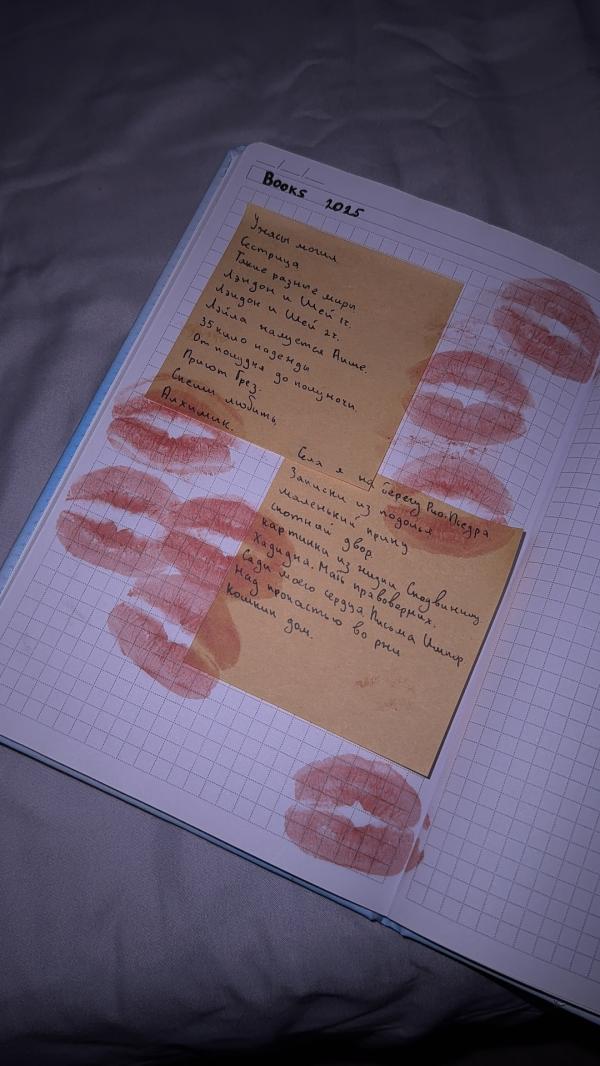 Books 2025
Ужасы могил
Сестрица
Такие разные миры
Лэндон и Шей 1т.
Лэндон и Шей 2т.
Лэйла налуется Лише.
35 кило надежды
От полудня до полуночи.
Приют Грез.
Спеши любить
Алхимик.
Села я на берегу Рио-Пьедра
Записки из подолья
маленький принц
скотный двор.
картинки из жизни Сподвижниц
Хадиджа. Мать правоверных.
Сады моего сердца Письма
над пропастью во ржи
кошкин дом.